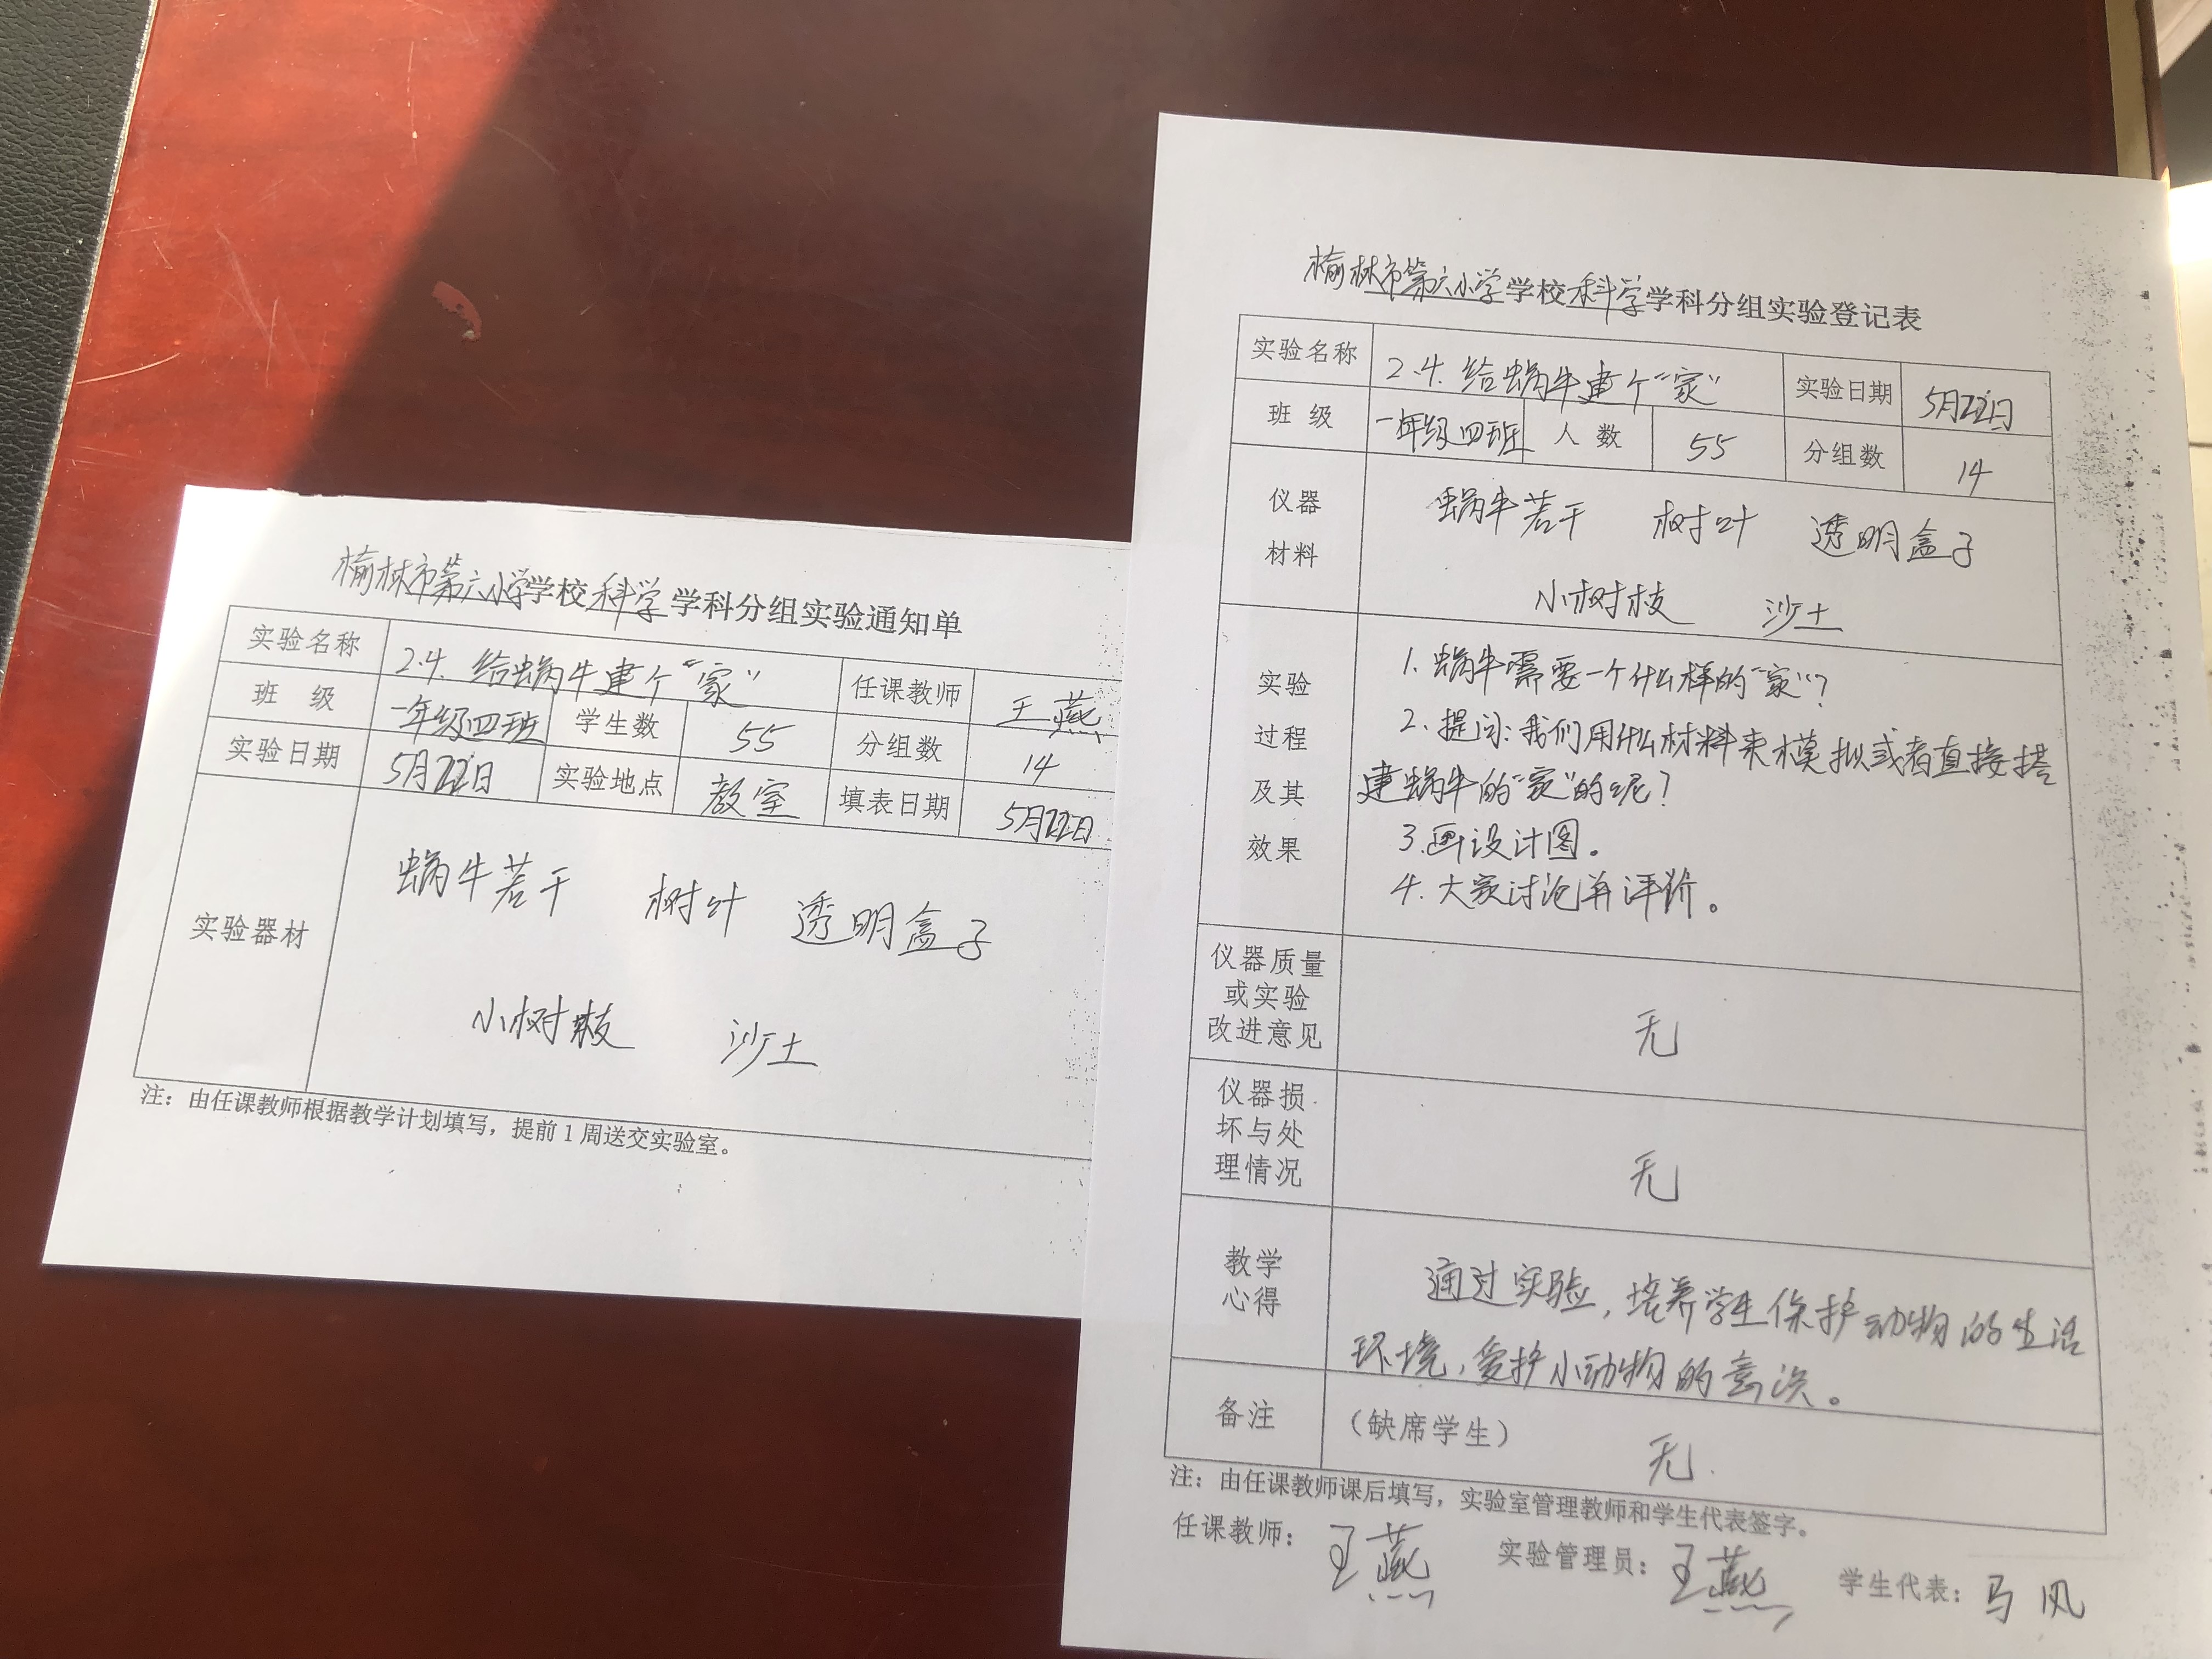 榆林市第六小学学校科学学科分组实验通知单
实验名称 2.4.给蜗牛建个“家” 任课教师 王燕
班 级 一年级四班 学生数 55 分组数 14
实验日期 5月22日 实验地点 教室 填表日期 5月22日
实验器材
蜗牛若干 树叶 透明盒子
小树枝 沙土
注：由任课教师根据教学计划填写，提前1周送交实验室。
榆林市第六小学学校科学学科分组实验登记表
实验名称 2.4.给蜗牛建个“家” 实验日期 5月22日
班 级 一年级四班 人 数 55 分组数 14
仪器
材料
蜗牛若干 树叶 透明盒子
小树枝 沙土
实验
过程
及其
效果
1.蜗牛需要一个什么样的“家”？
2.提问：我们用什么材料来模拟或者直接搭
建蜗牛的“家”的呢？
3.画设计图。
4.大家讨论并评价。
仪器质量
或实验
改进意见
无
仪器损
坏与处
理情况
无
教学
心得
通过实验，培养学生保护动物的生活
环境，爱护小动物的意识。
备注 （缺席学生） 无
注：由任课教师课后填写，实验室管理教师和学生代表签字。
任课教师：王燕 实验管理员：王燕 学生代表：马风